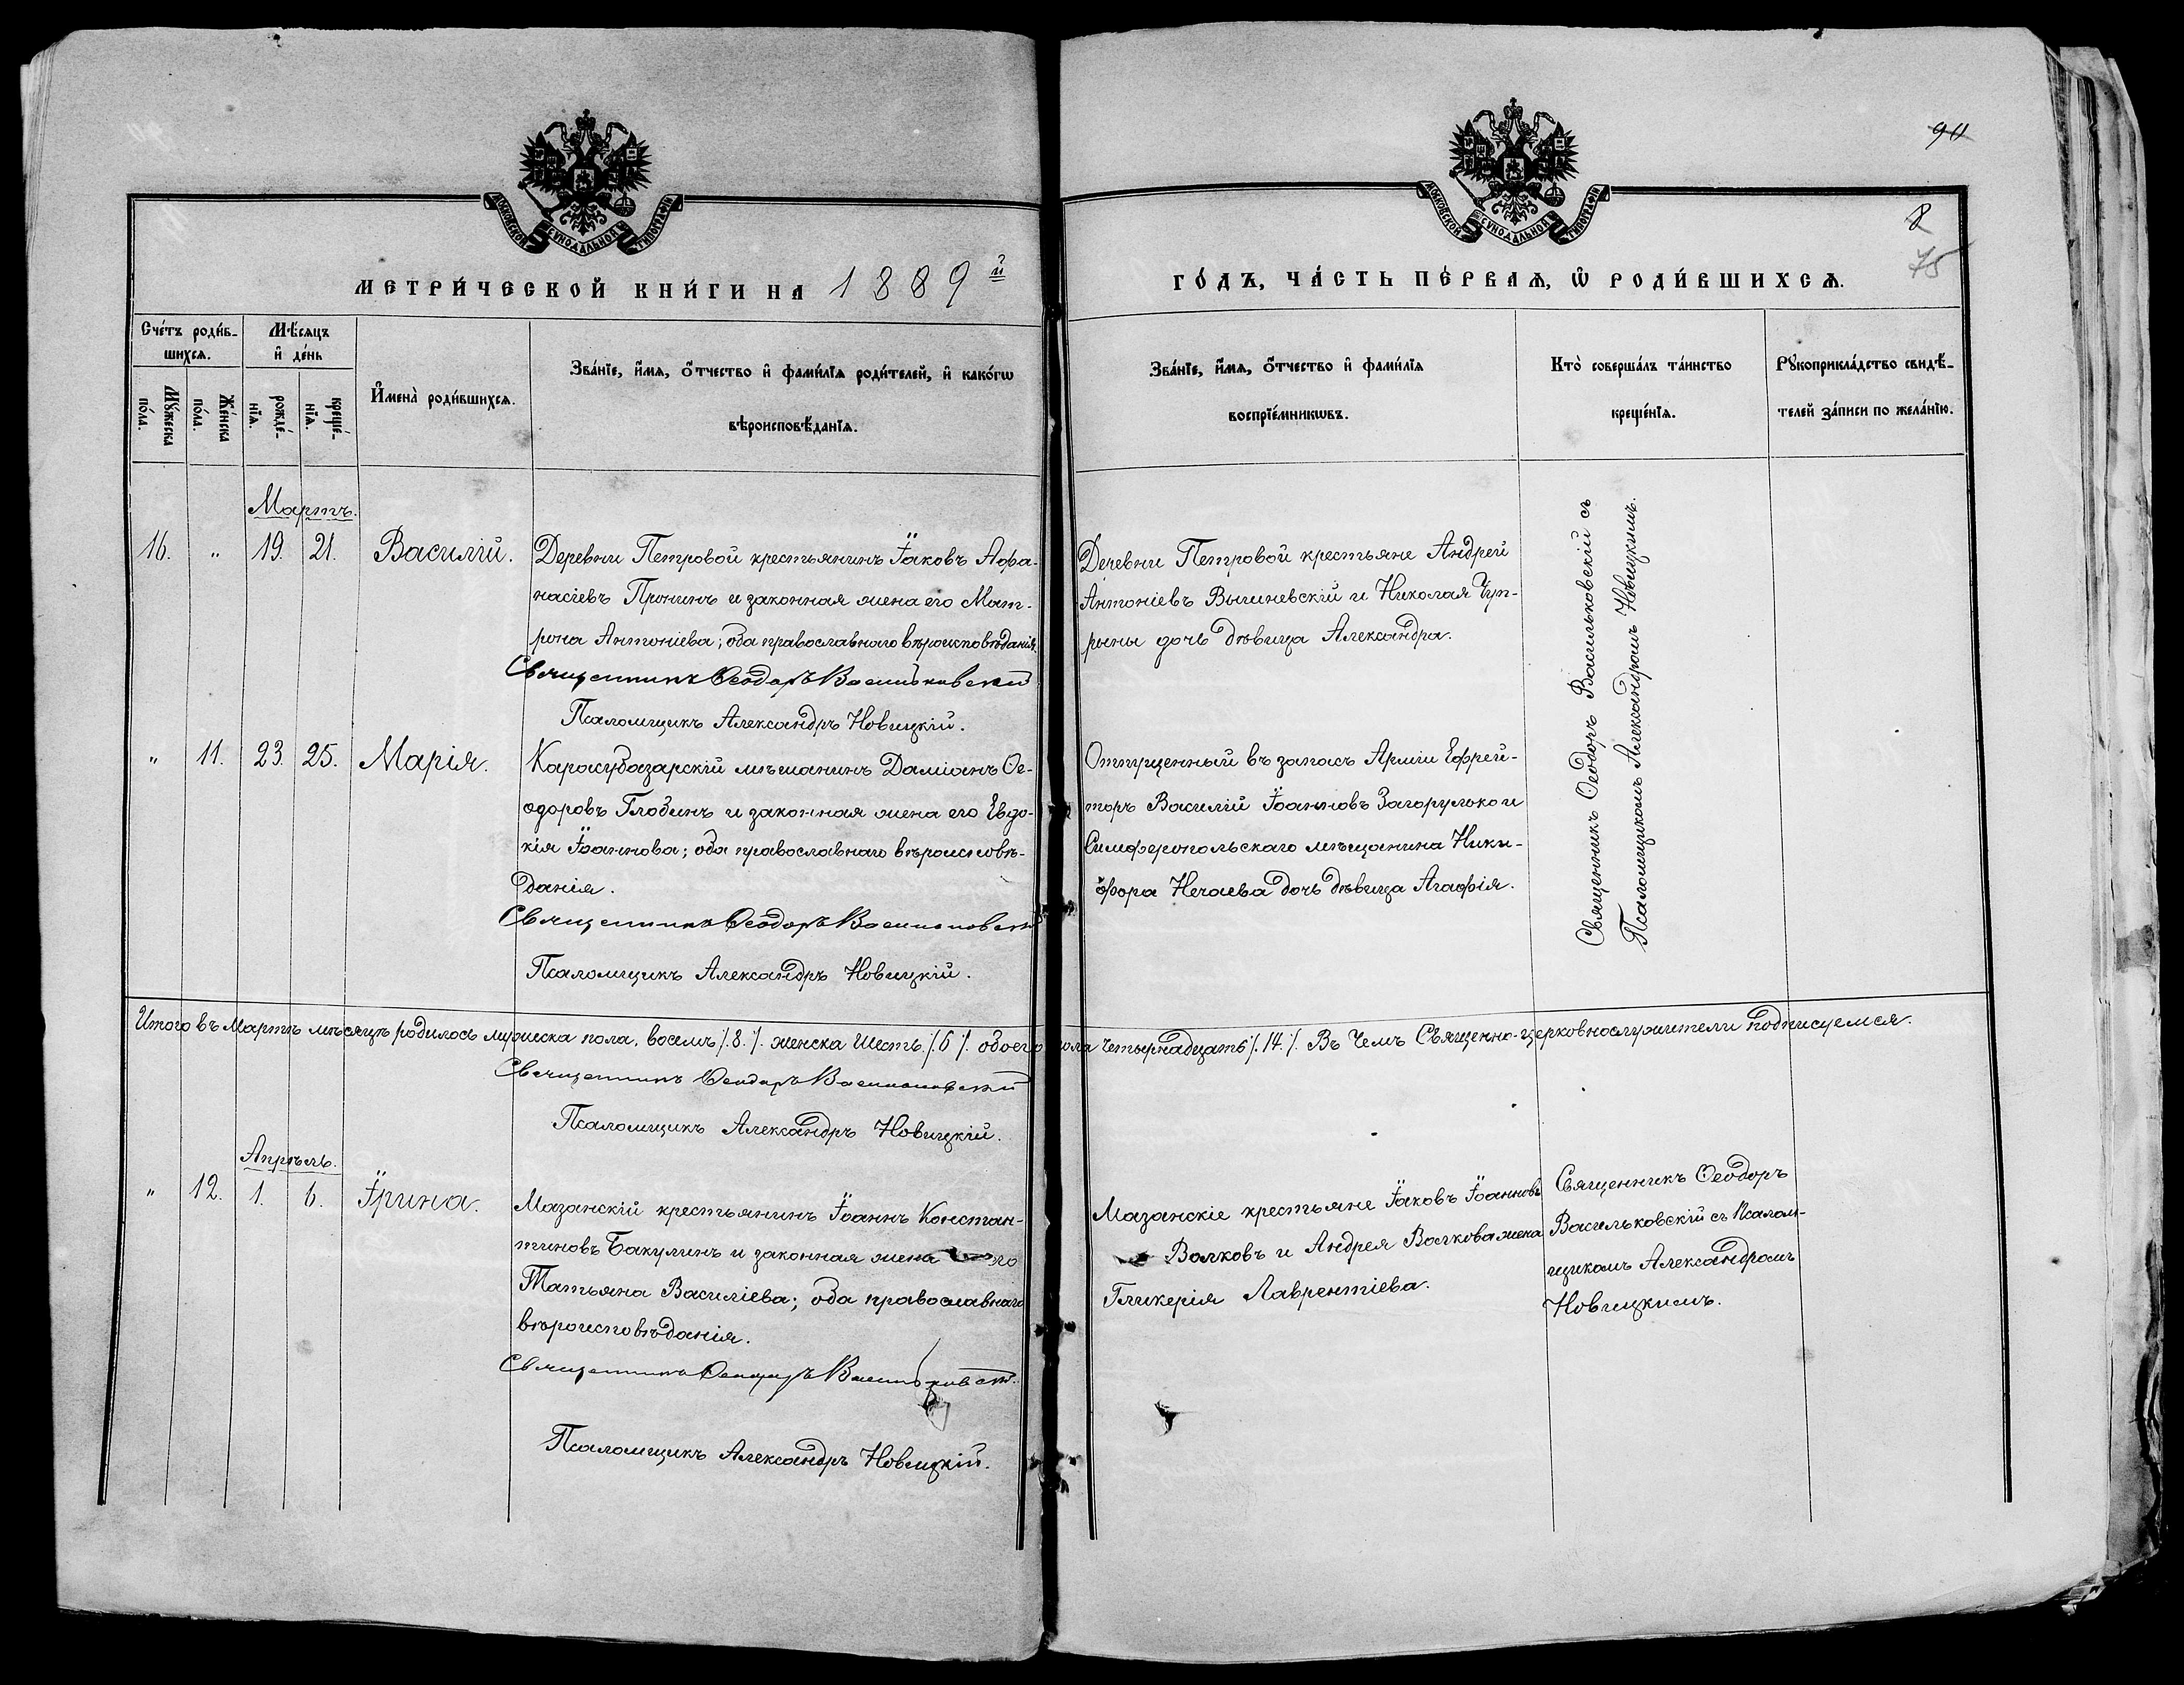 90
8
75
МОСКОВСКОЙ СѴНОДАЛЬНОЙ ТИПОГРАФІИ
МОСКОВСКОЙ СѴНОДАЛЬНОЙ ТИПОГРАФІИ
МЕТРИ́ЧЕСКОЙ КНИ́ГИ НА 1889й
ГО́ДЪ, ЧА́СТЬ ПЕ́РВАѦ, Ѡ҆ РОДИ́ВШИХСѦ.
Сче́тъ роди́в-
шихсѧ.
Мꙋ́жеска по́ла.
Же́нска по́ла.
Мѣ́сѧцъ
и҆ де́нь
рожде́-
нїѧ.
креще́-
нїѧ.
И҆мена̀ роди́вшихсѧ.
Зва́нїе, и҆́мѧ, ѻ҆́тчество и҆ фами́лїѧ роди́телей, и҆ како́гѡ
вѣроисповѣ́данїѧ.
Зва́нїе, и҆́мѧ, ѻ҆́тчество и҆ фами́лїѧ
воспрїе́мникѡвъ.
Кто̀ соверша́лъ та́инство
креще́нїѧ.
Рꙋкоприкла́дство свидѣ́-
телей за́писи по жела́нїю.
Мартъ.
16. " 19. 21. Василій.
Деревни Петровой крестьянинъ Іаковъ Афа-
насіевъ Пронинъ и законная жена его Мат-
рона Антоніева; оба православнаго вѣроисповѣданія.
Священникъ Ѳеодоръ Васильковскій
Псаломщикъ Александръ Новицкій.
Деревни Петровой крестьяне Андрей
Антоніевъ Вышневскій и Николая Чуп-
рыны дочь дѣвица Александра.
Священникъ Ѳеодоръ Васильковскій съ
Псаломщикомъ Александромъ Новицкимъ.
" 11. 23. 25. Марія.
Карасубазарскій мѣщанинъ Даміанъ Ѳе-
одоровъ Глобинъ и законная жена его Евдо-
кія Іоаннова; оба православнаго вѣроисповѣ-
данія.
Священникъ Ѳеодоръ Васильковскій
Псаломщикъ Александръ Новицкій.
Отпущенный въ запасъ Арміи Ефрей-
торъ Василій Іоанновъ Загорулько и
Симферопольскаго мѣщанина Ники-
фора Нечаева дочь дѣвица Агафія.
Итого въ Мартѣ мѣсяцѣ родилось мужеска пола, восемъ ./.8./. женска Шесть ./.6./. обоего пола четырнадцать ./.14./. Въ Чемъ Священно-церковнослужители подписуемся.
Священникъ Ѳеодоръ Васильковскій
Псаломщикъ Александръ Новицкій.
Апрѣль.
" 12. 1. 6. Ірина.
Мазанскій крестьянинъ Іоаннъ Констан-
тиновъ Бакулинъ и законная жена его
Татьяна Василіева; оба православнаго
вѣроисповѣданія.
Священникъ Ѳеодоръ Васильковскій.
Псаломщикъ Александръ Новицкій.
Мазанскіе крестьяне Іаковъ Іоанновъ
Волковъ и Андрея Волкова жена
Гликерія Лаврентіева.
Священникъ Ѳеодоръ
Васильковскій съ Псалом-
щикомъ Александромъ
Новицкимъ.